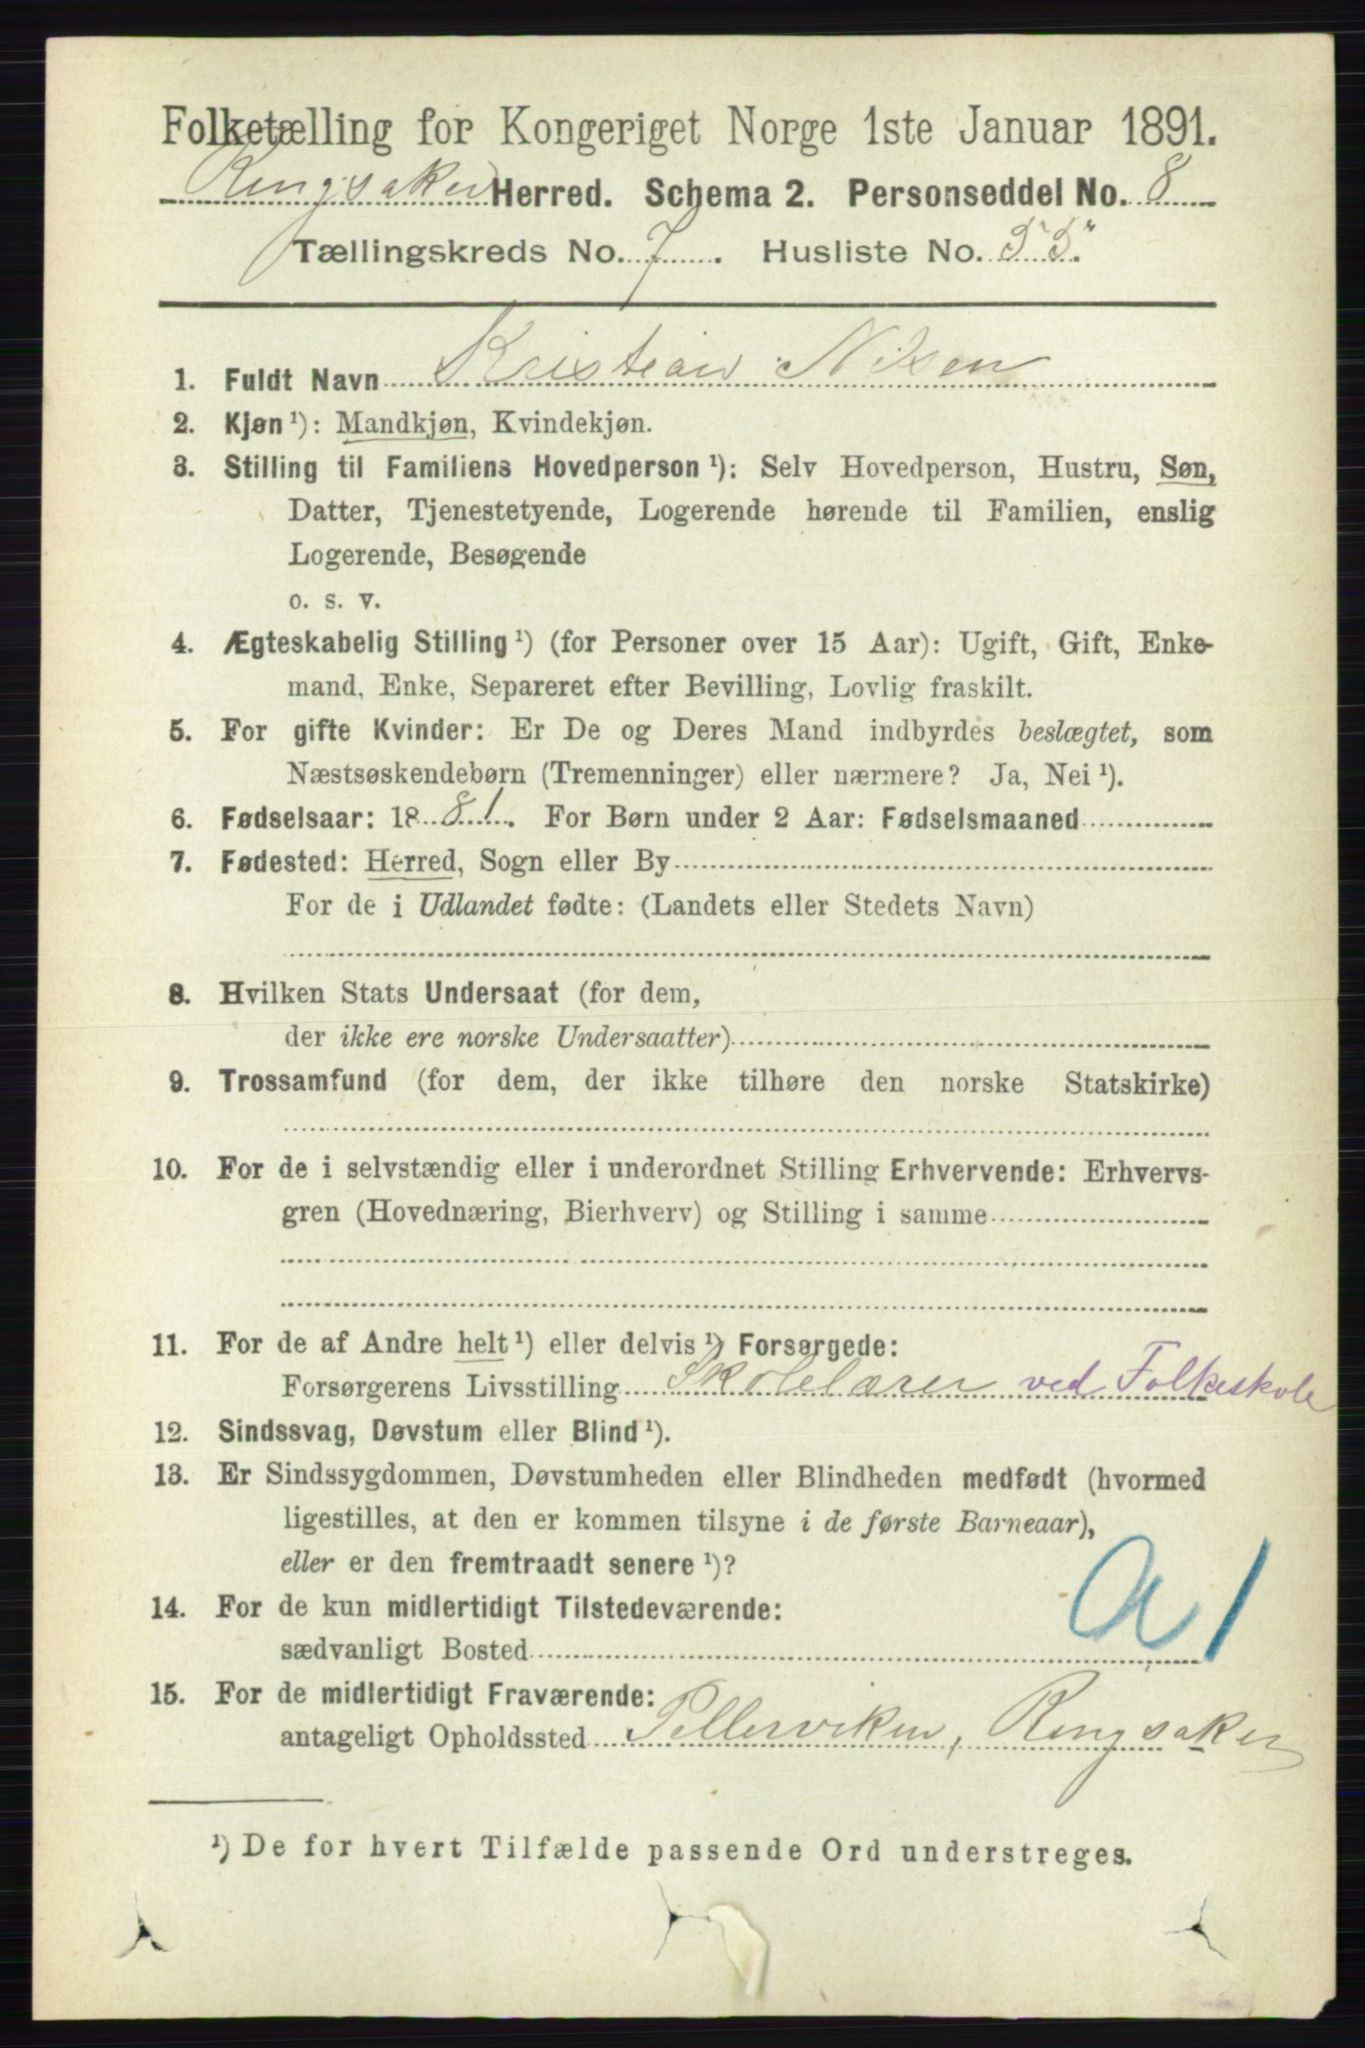 Folketælling for Kongeriget Norge 1ste Januar 1891.
Ringsaker Herred. Schema 2. Personseddel No. 8
Tællingskreds No. 7. Husliste No. 55.
1. Fuldt Navn Kristian Nilsen
2. Kjøn ¹): Mandkjøn, Kvindekjøn.
3. Stilling til Familiens Hovedperson ¹): Selv Hovedperson, Hustru, Søn,
Datter, Tjenestetyende, Logerende hørende til Familien, enslig
Logerende, Besøgende
o. s. v.
4. Ægteskabelig Stilling ¹) (for Personer over 15 Aar): Ugift, Gift, Enke-
mand, Enke, Separeret efter Bevilling, Lovlig fraskilt.
5. For gifte Kvinder: Er De og Deres Mand indbyrdes beslægtet, som
Næstsøskendebørn (Tremenninger) eller nærmere? Ja, Nei ¹).
6. Fødselsaar: 1881. For Børn under 2 Aar: Fødselsmaaned
7. Fødested: Herred, Sogn eller By
For de i Udlandet fødte: (Landets eller Stedets Navn)
8. Hvilken Stats Undersaat (for dem,
der ikke ere norske Undersaatter)
9. Trossamfund (for dem, der ikke tilhøre den norske Statskirke)
10. For de i selvstændig eller i underordnet Stilling Erhvervende: Erhvervs-
gren (Hovednæring, Bierhverv) og Stilling i samme
11. For de af Andre helt ¹) eller delvis ¹) Forsørgede:
Forsørgerens Livsstilling Skolelærer ved Folkeskole
12. Sindssvag, Døvstum eller Blind ¹).
13. Er Sindssygdommen, Døvstumheden eller Blindheden medfødt (hvormed
ligestilles, at den er kommen tilsyne i de første Barneaar),
eller er den fremtraadt senere ¹)?
a1
14. For de kun midlertidigt Tilstedeværende:
sædvanligt Bosted
15. For de midlertidigt Fraværende:
antageligt Opholdssted Pellerviken, Ringsaker
¹) De for hvert Tilfælde passende Ord understreges.